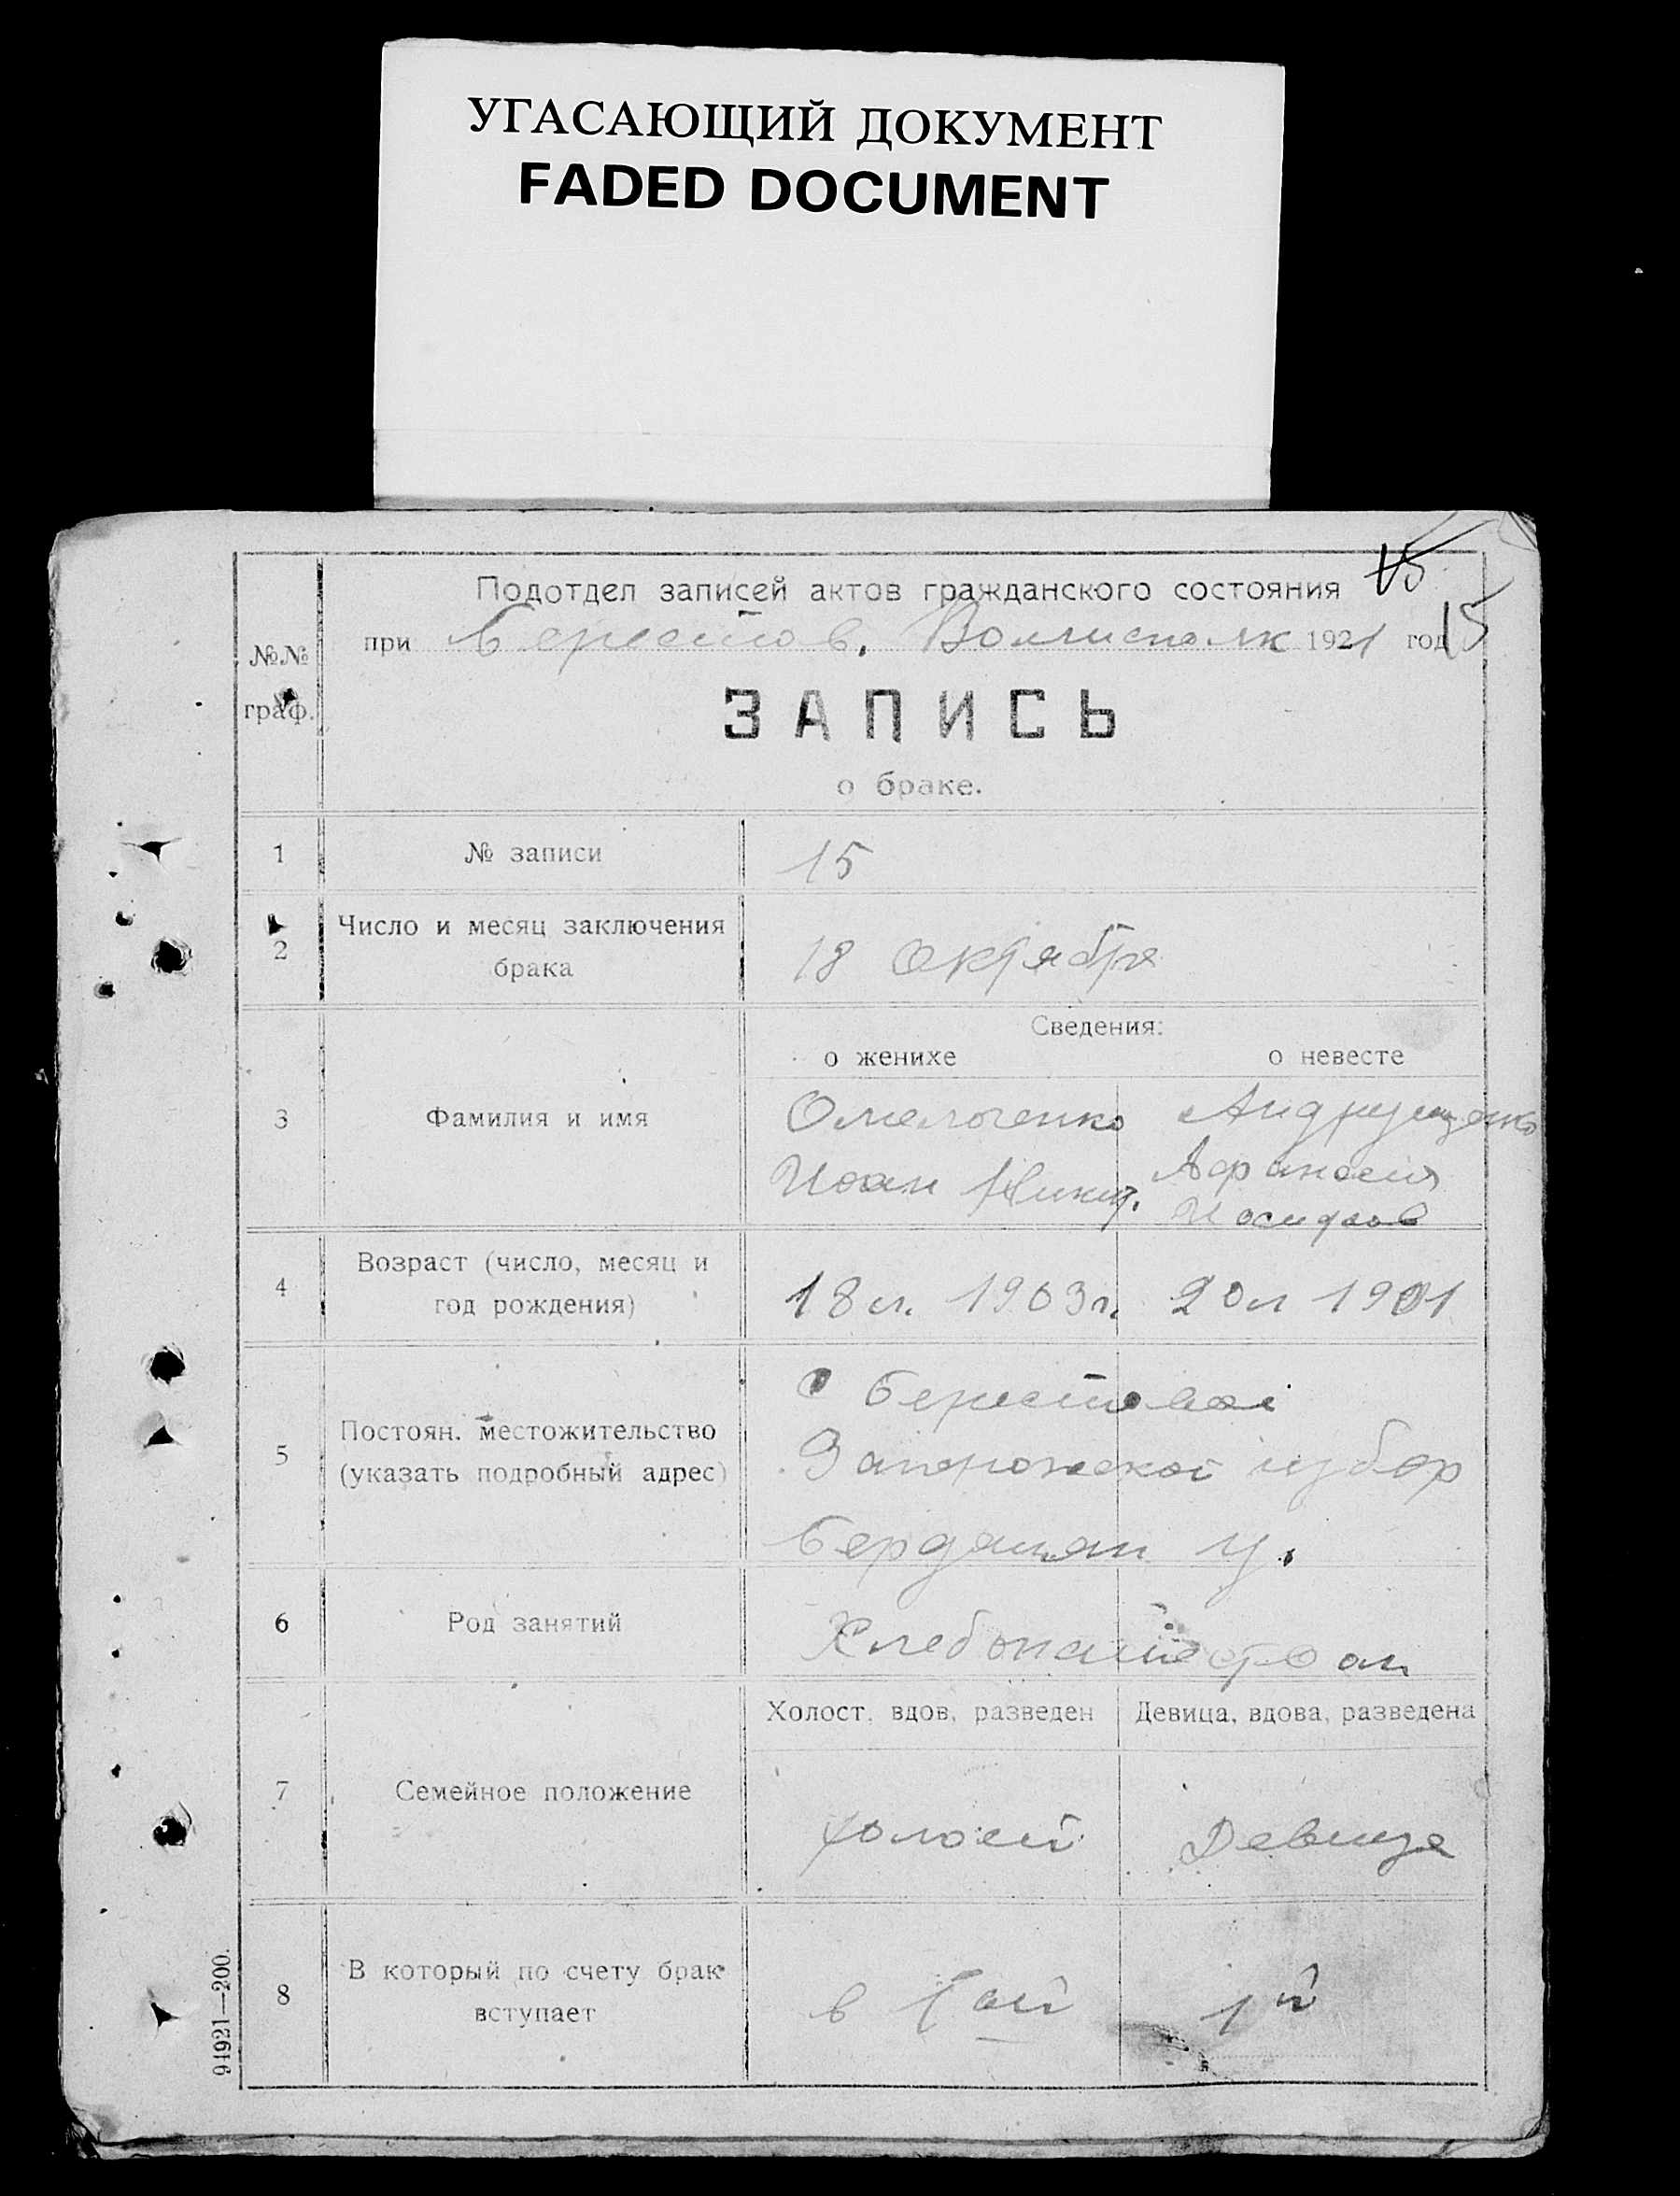 УГАСАЮЩИЙ ДОКУМЕНТ
FADED DOCUMENT
15
Подотдел записей актов гражданского состояния
при Берестов. Волисполк 1921 год
15
№№ граф.
ЗАПИСЬ
о браке.
1 № записи 15
2 Число и месяц заключения брака 18 Октября
Сведения:
о женихе о невесте
3 Фамилия и имя
Омельченко Андрущенко
Иоан Никит. Афанасия
Иосифов
4 Возраст (число, месяц и год рождения) 18 л. 1903 г. 20 л 1901
5 Постоян. местожительство (указать подробный адрес)
с Берестовой
Запорожской губер
Бердянск у.
6 Род занятий Хлебопашеством
Холост, вдов, разведен Девица, вдова, разведена
7 Семейное положение холост Девица
8 В который по счету брак вступает в 1ый 1й
94921—200.